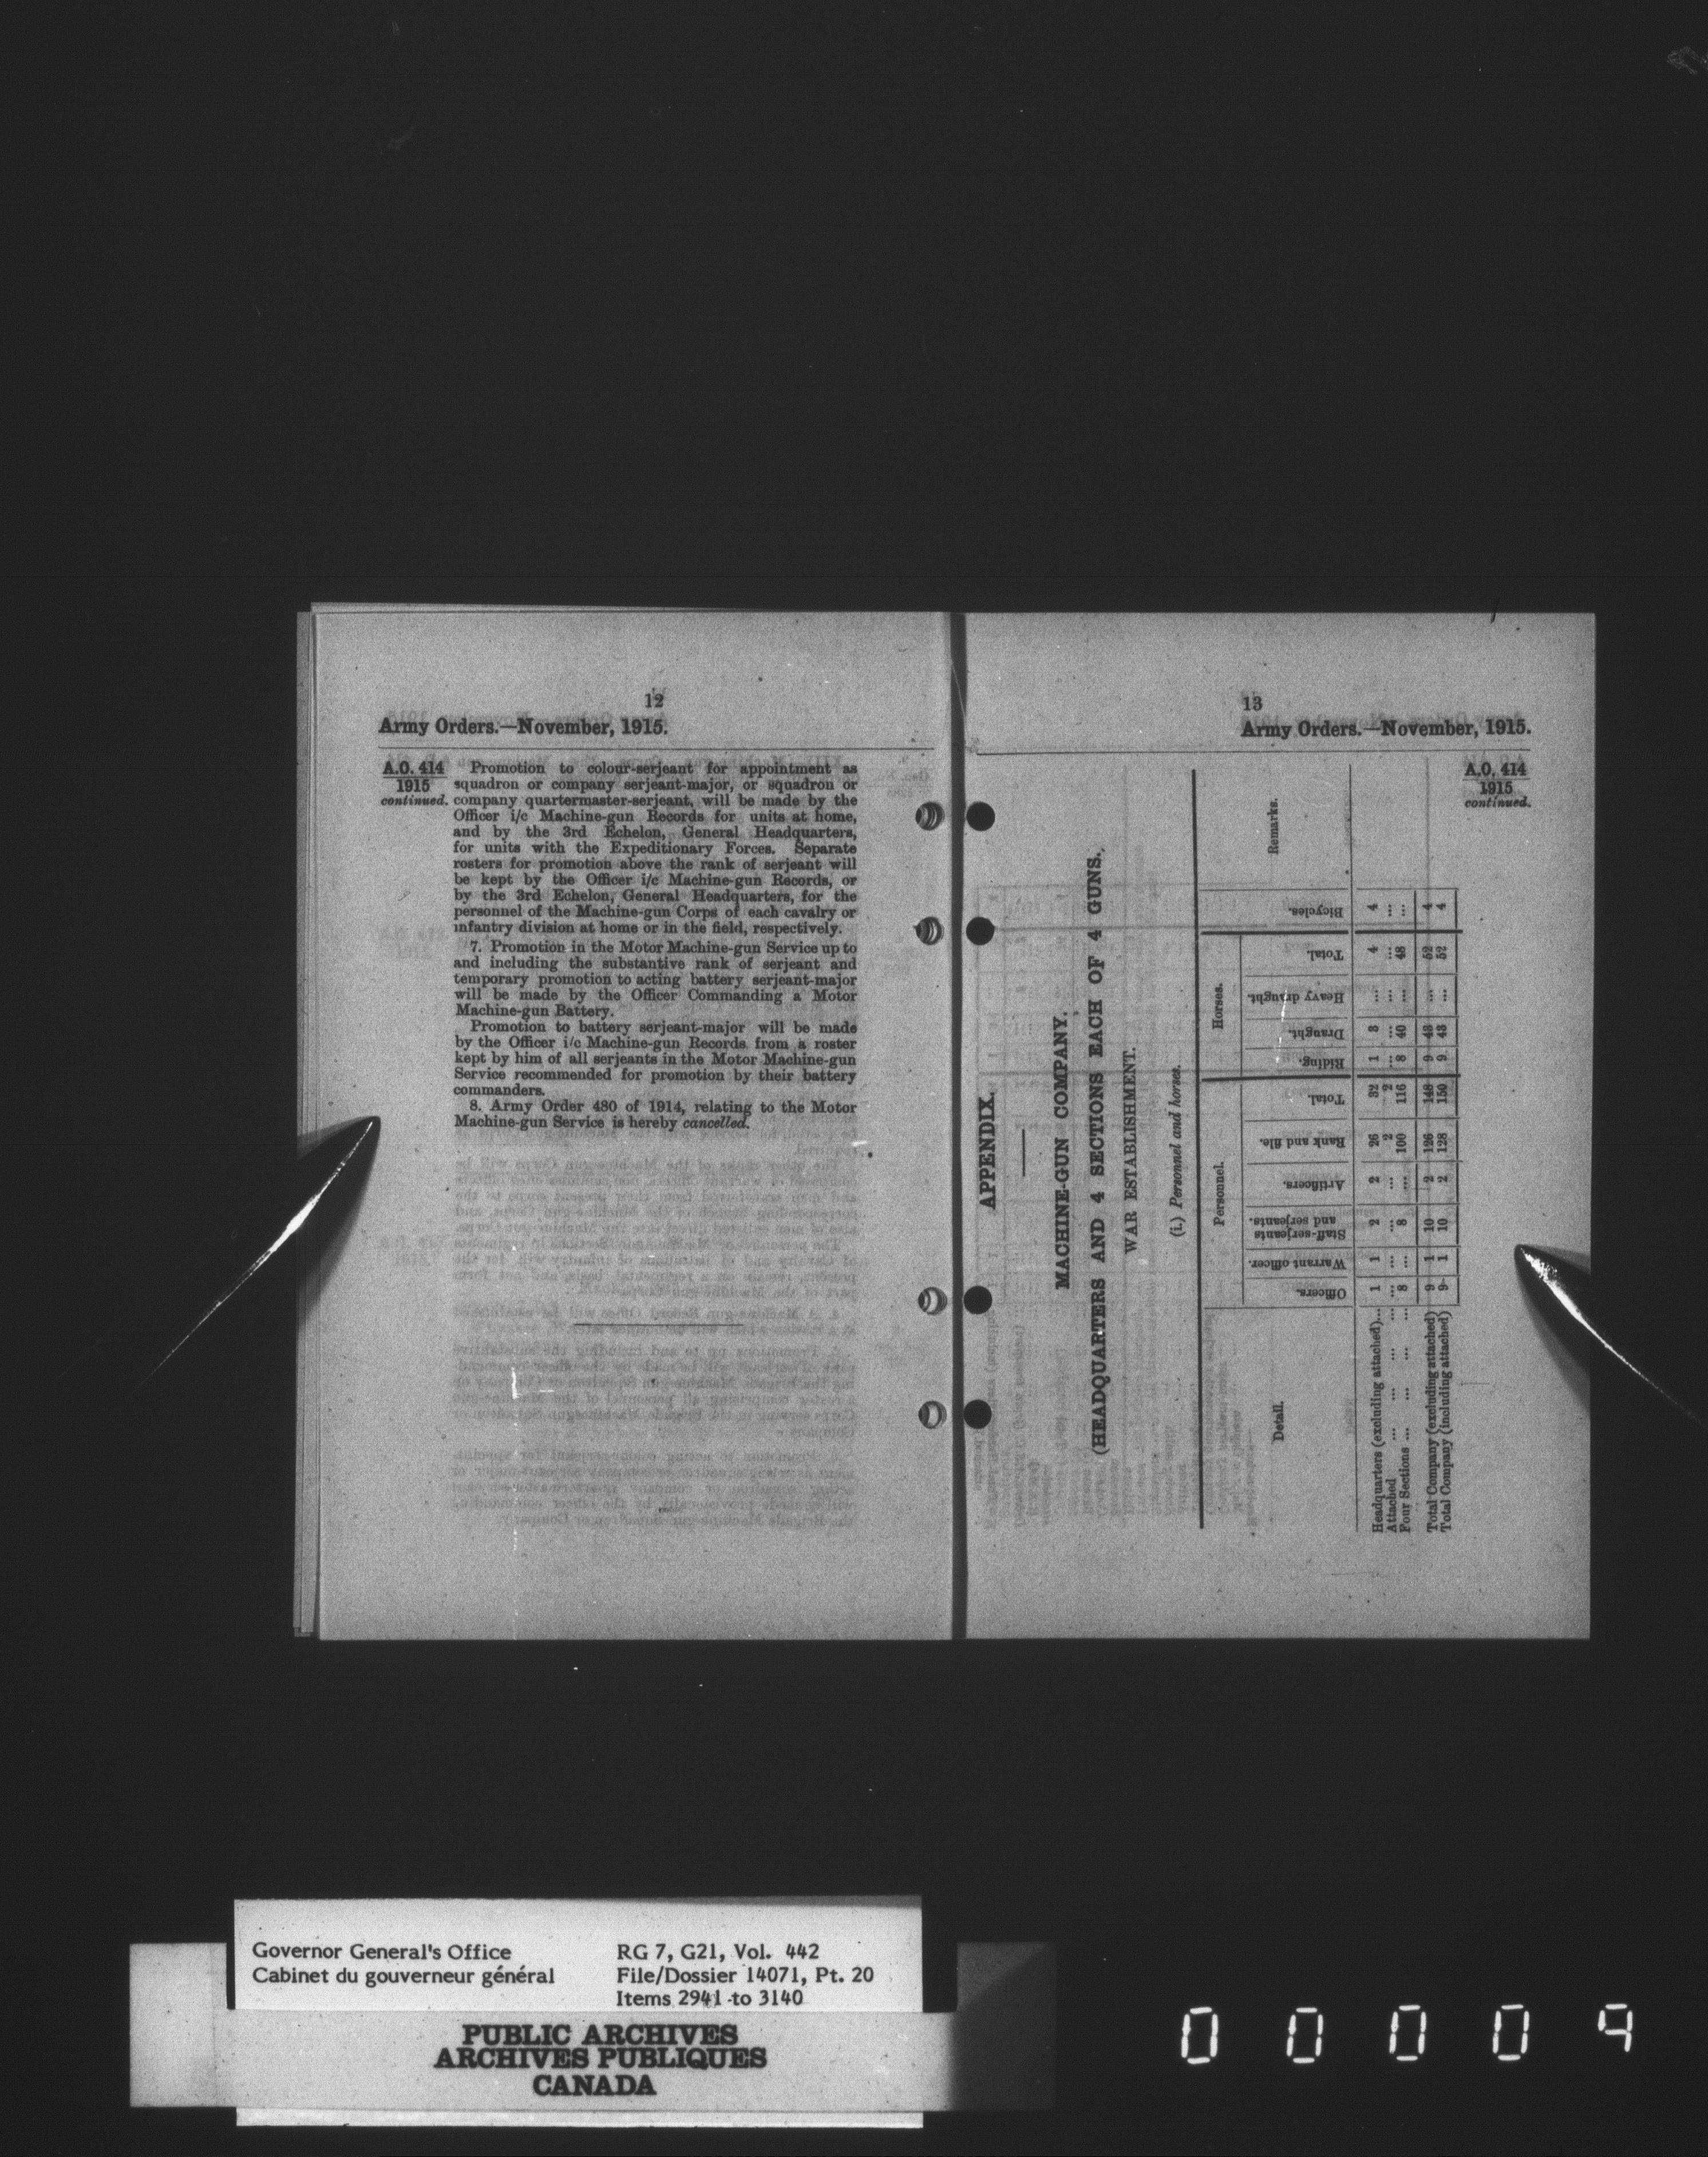 12
Army Orders.—November, 1915.
A.O. 414
1915
continued.
Promotion to colour-serjeant for appointment as
squadron or company serjeant-major, or squadron or
company quartermaster-serjeant, will be made by the
Officer i/c Machine-gun Records for units at home,
and by the 3rd Echelon, General Headquarters,
for units with the Expeditionary Forces. Separate
rosters for promotion above the rank of serjeant will
be kept by the Officer i/c Machine-gun Records, or
by the 3rd Echelon, General Headquarters, for the
personnel of the Machine-gun Corps of each cavalry or
infantry division at home or in the field, respectively.
7. Promotion in the Motor Machine-gun Service up to
and including the substantive rank of serjeant and
temporary promotion to acting battery serjeant-major
will be made by the Officer Commanding a Motor
Machine-gun Battery.
Promotion to battery serjeant-major will be made
by the Officer i/c Machine-gun Records from a roster
kept by him of all serjeants in the Motor Machine-gun
Service recommended for promotion by their battery
commanders.
8. Army Order 480 of 1914, relating to the Motor
Machine-gun Service is hereby cancelled.
13
Army Orders.—November, 1915.
A.O. 414
1915
continued.
APPENDIX.
MACHINE-GUN COMPANY.
(HEADQUARTERS AND 4 SECTIONS EACH OF 4 GUNS.)
WAR ESTABLISHMENT.
(i.) Personnel and horses.
Detail. Personnel. Horses. Bicycles. Remarks.
Officers. Warrant officer. Staff-serjeants and serjeants. Artificers. Rank and file. Total. Riding. Draught. Heavy draught. Total.
Headquarters (excluding attached)... 1 1 2 2 26 32 1 3 ... 4 4
Attached ... ... ... ... ... ... ... ... 2 2 ... ... ... ... ...
Four Sections ... ... ... ... 8 ... 8 ... 100 116 8 40 ... 48 ...
Total Company (excluding attached) 9 1 10 2 126 148 9 43 ... 52 4
Total Company (including attached) 9 1 10 2 128 150 9 43 ... 52 4
Governor General's Office
Cabinet du gouverneur général
RG 7, G21, Vol. 442
File/Dossier 14071, Pt. 20
Items 2941 to 3140
PUBLIC ARCHIVES
ARCHIVES PUBLIQUES
CANADA
0 0 0 0 9